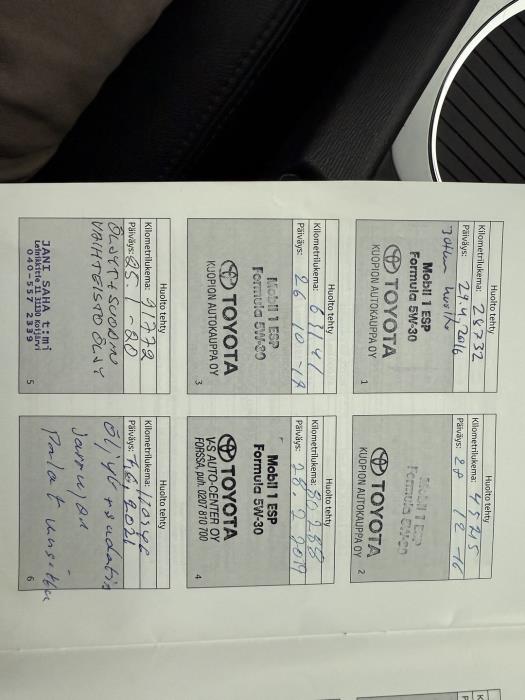 Huolto tehty
Kilometrilukema: 28732
Päiväys: 29.4.2016
Mobil 1 ESP
Formula 5W-30
TOYOTA
KUOPION AUTOKAUPPA OY
1
Huolto tehty
Kilometrilukema: 45215
Päiväys: 28 12 -16
Mobil 1 ESP
Formula 5W-30
TOYOTA
KUOPION AUTOKAUPPA OY
2
Huolto tehty
Kilometrilukema: 63141
Päiväys: 26 10 -17
Mobil 1 ESP
Formula 5W-30
TOYOTA
KUOPION AUTOKAUPPA OY
3
Huolto tehty
Kilometrilukema: 80288
Päiväys: 28. 2 2019
Mobil 1 ESP
Formula 5W-30
TOYOTA
V-S AUTO-CENTER OY
FORSSA, puh. 0207 810 700
4
Huolto tehty
Kilometrilukema: 91772
Päiväys: 25. 1 -20
ÖLJYT + SUODATIN
VAIHTEISTO ÖLJY
JANI SAHA t:mi
31130 Koijärvi
5
Huolto tehty
Kilometrilukema:
Päiväys: 2021
Öljyt + suodatin
jarrujen
Palat
6